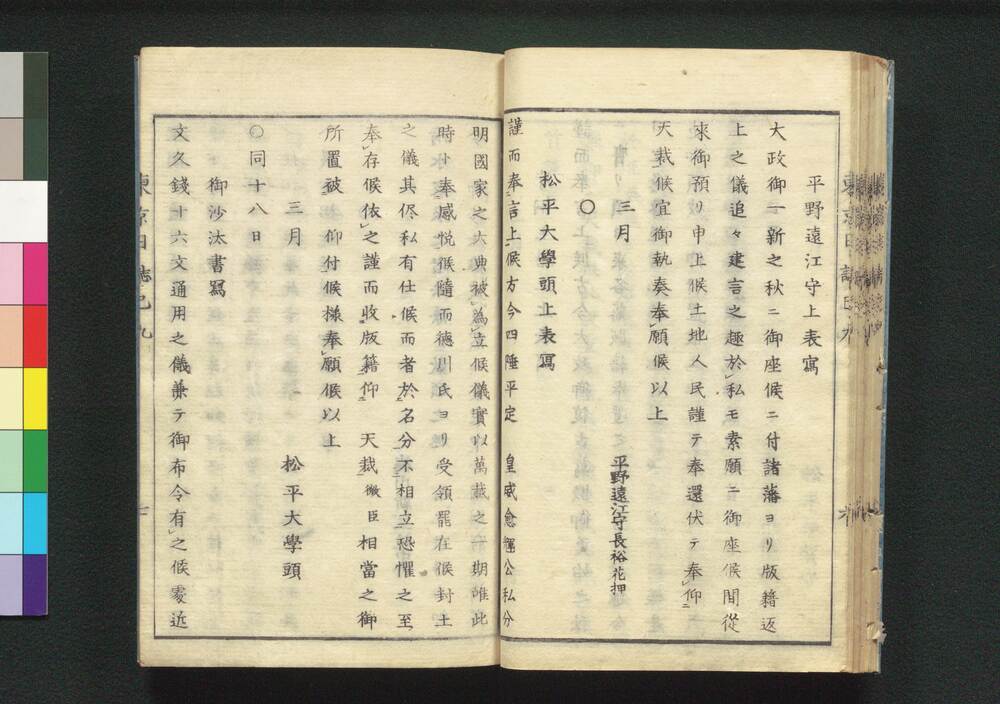 平野遠江守上表寫
大政御一新之秋ニ御座候ニ付諸藩ヨリ版籍返
上之儀追々建言之趣於私モ素願ニ御座候間從
來御預リ申上候土地人民謹テ奉還伏テ奉仰ニ
天裁候宜御執奏奉願候以上
三月 平野遠江守長裕花押
○
松平大學頭上表寫
謹而奉言上候方今四陲平定 皇威愈輝公私分
明國家之大典被為立候儀實以萬載之一期唯此
時ト奉感悦候隨而德川氏ヨリ受領罷在候封土
之儀其侭私有仕候而者於名分不相立恐懼之至
奉存候依之謹而收版籍仰 天裁微臣相當之御
所置被仰付候様奉願候以上
三月 松平大學頭
○同十八日
御沙汰書寫
文久錢十六文通用之儀兼テ御布令有之候處近
東京日誌己九
七